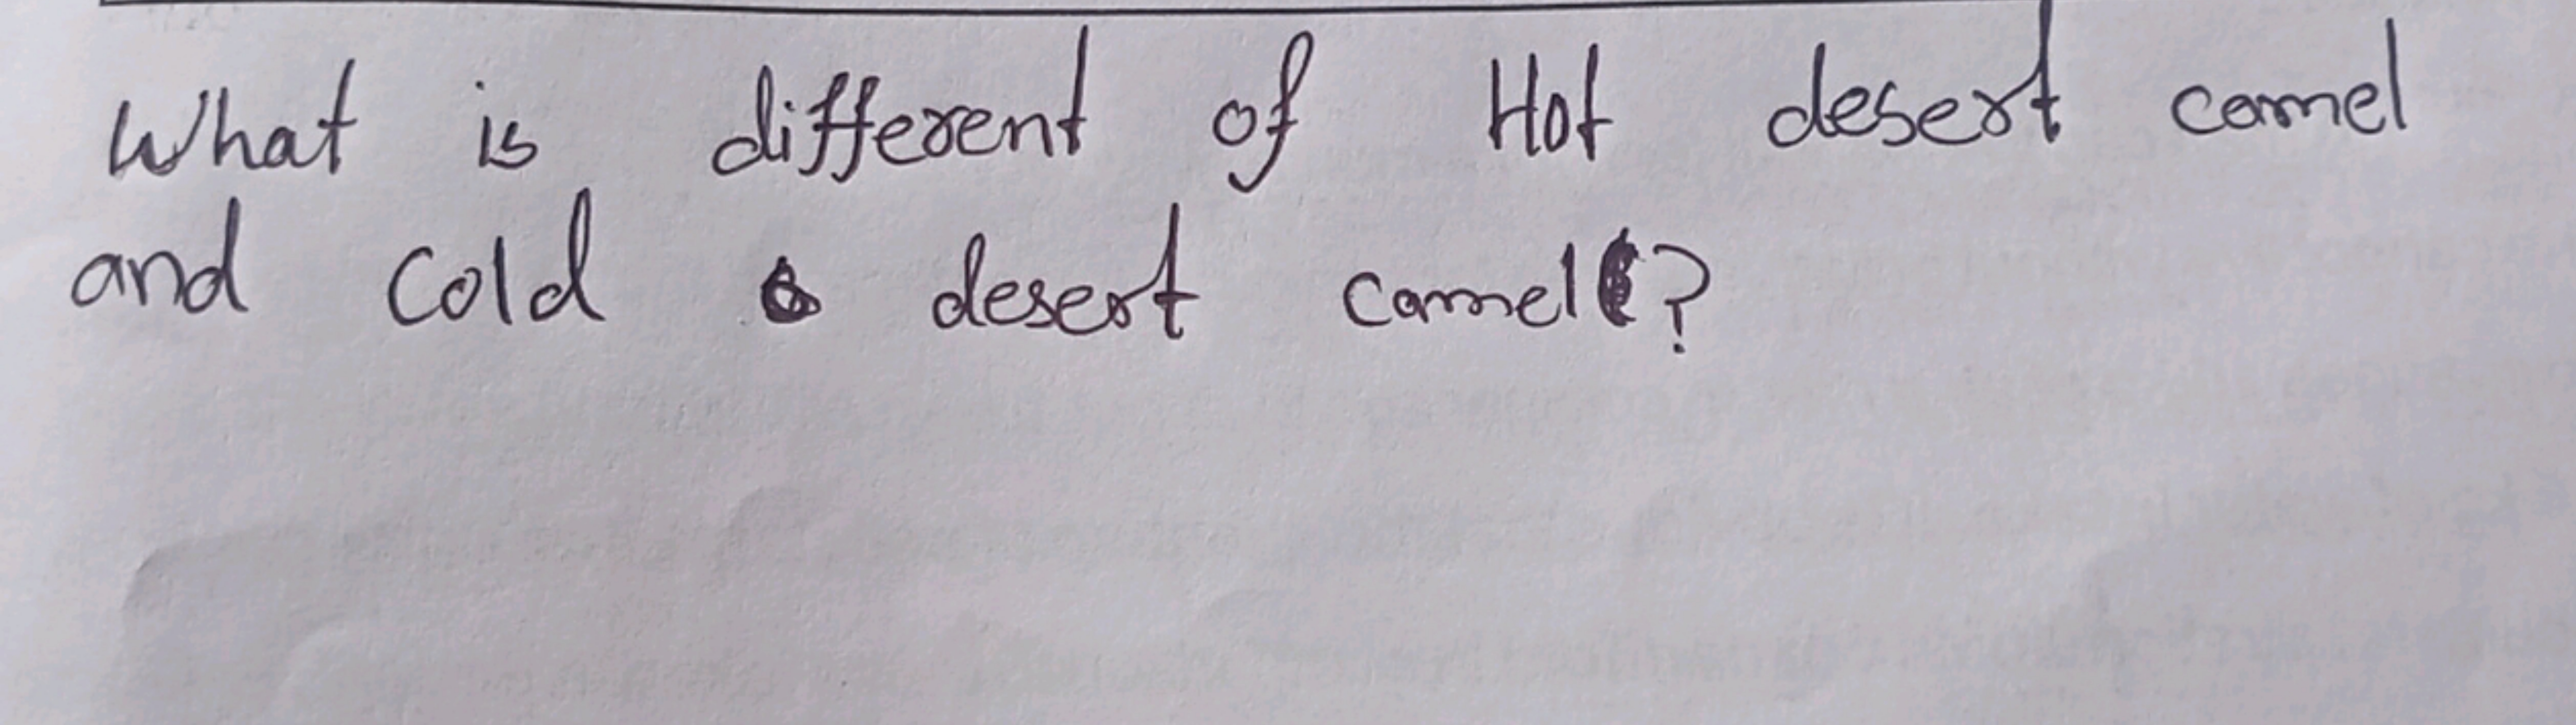 What is different of Hot desert camel
and cold desert camel?